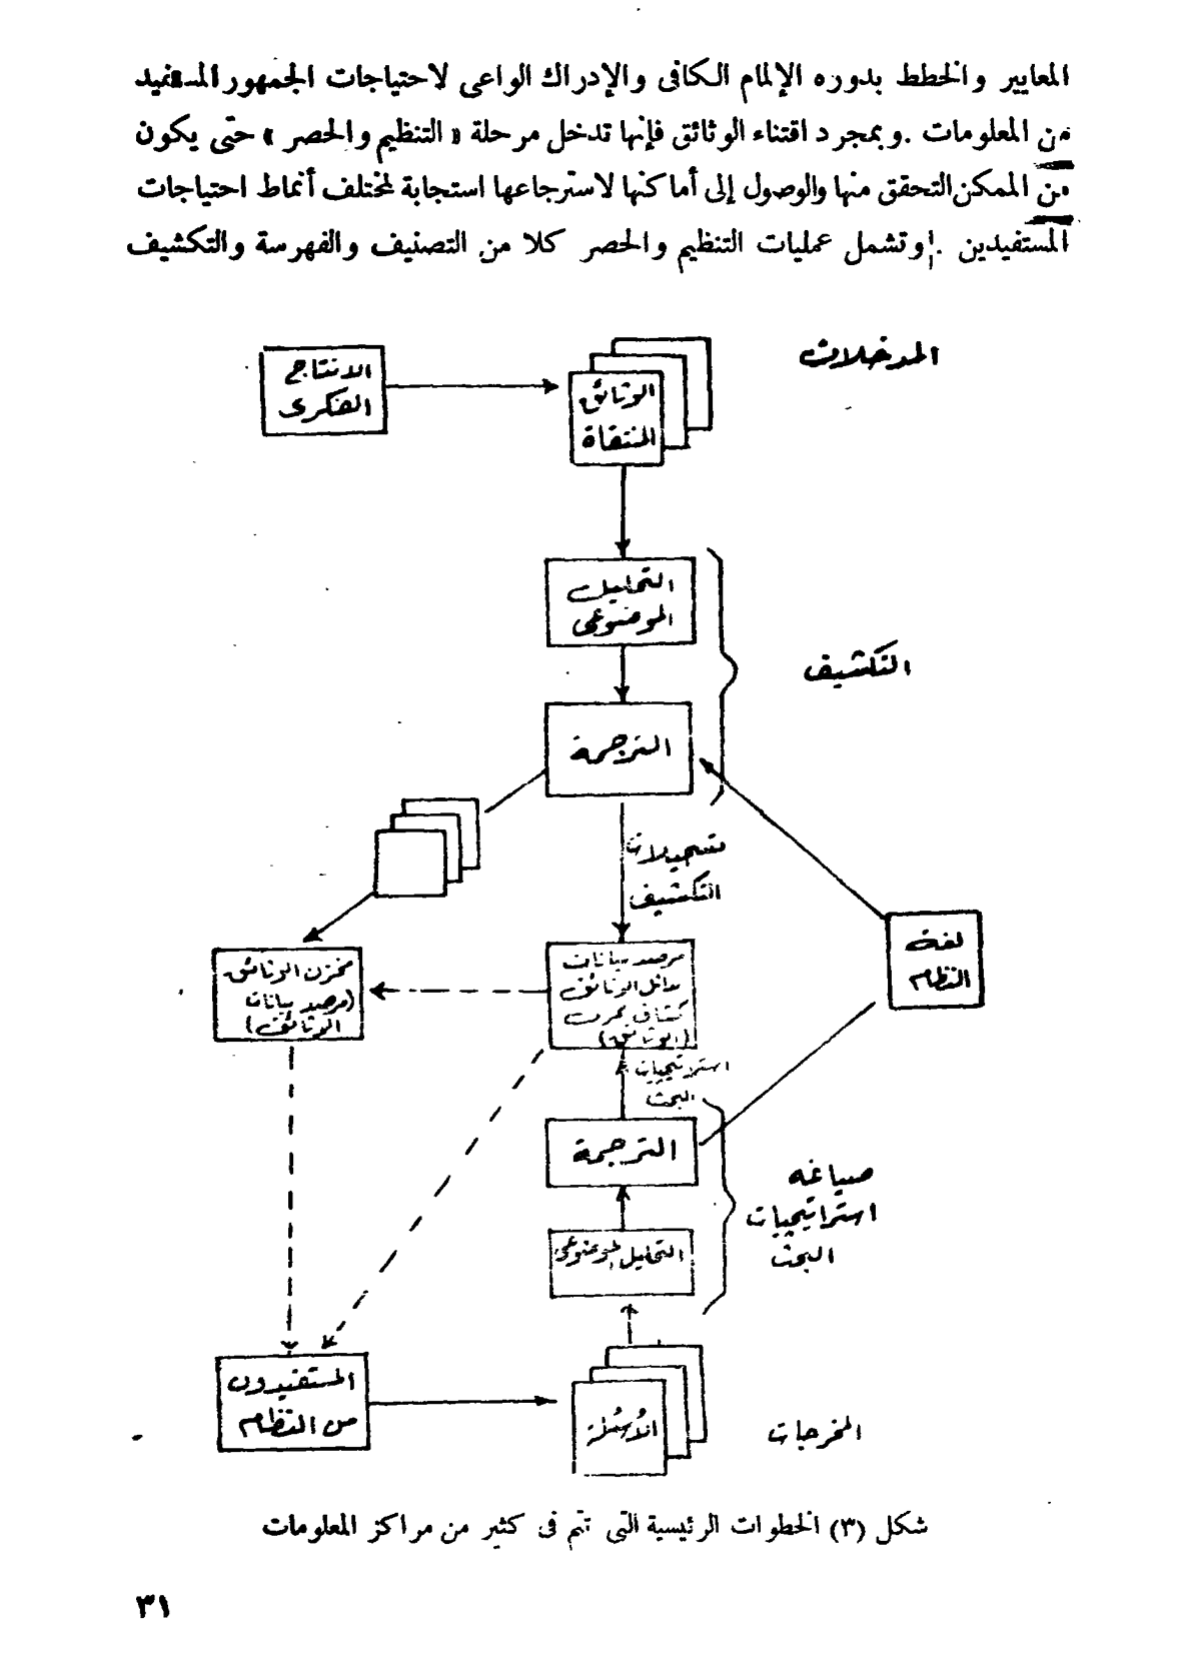 المعايير والخطط بدوره الإلمام الكافى والإدراك الواعى لاحتياجات الجمهور المستفيد
من المعلومات . وبمجرد اقتناء الوثائق فإنها تدخل مرحلة « التنظيم والحصر » حتى يكون
من الممكن التحقق منها والوصول إلى أماكنها لاسترجاعها استجابة لمختلف أنماط احتياجات
المستفيدين . وتشمل عمليات التنظيم والحصر كلا من التصنيف والفهرسة والتكشيف
المدخلات
الوثائق
المنتقاة
الانتاج
الفكرى
التحليل
الموضوعى
التكشيف
الترجمة
تسجيلات
التكشيف
لغة
النظام
مرصد بيانات
بدائل الوثائق
كشاف
(الوثائق)
مخزن الوثائق
(مرصد بيانات
الوثائق)
استراتيجيات
البحث
الترجمة
صياغه
استراتيجيات
البحث
التحليل الموضوعى
المستفيدون
من النظام
الأسئلة
المخرجات
شكل (٣) الخطوات الرئيسية التى تتم فى كثير من مراكز المعلومات
٣١